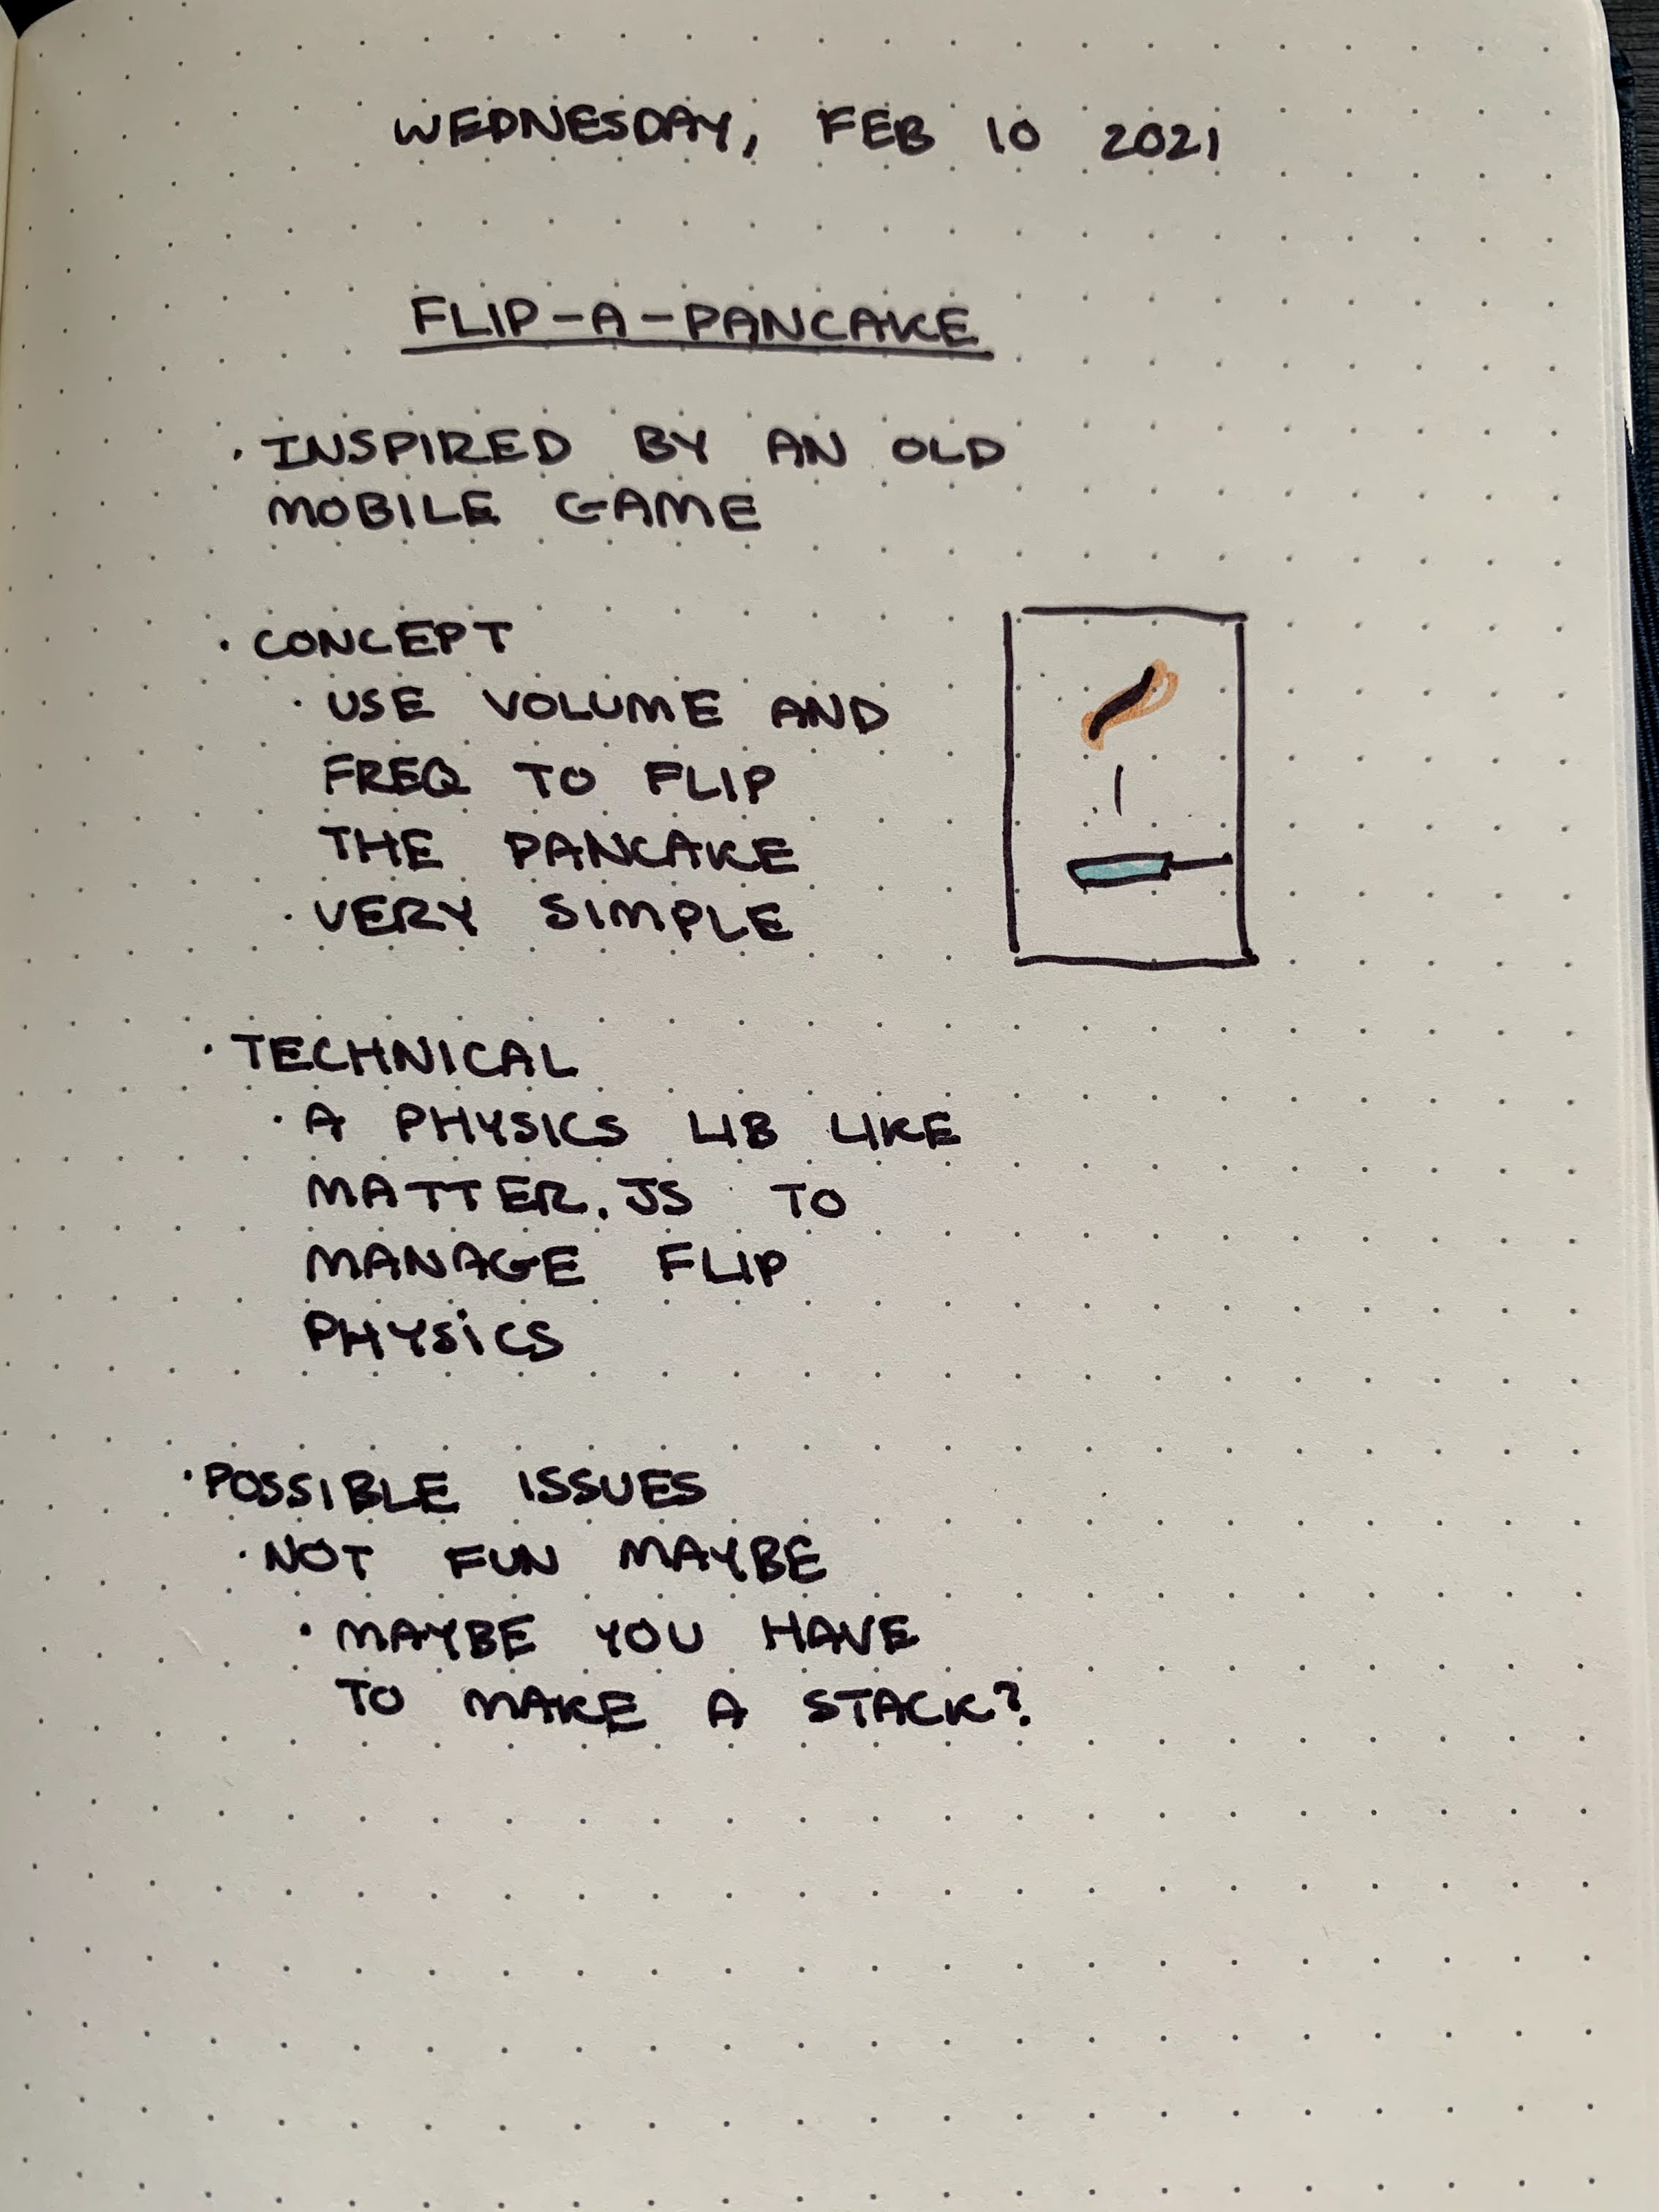 WEDNESDAY, FEB 10 2021
FLIP-A-PANCAKE
· INSPIRED BY AN OLD
MOBILE GAME
· CONCEPT
· USE VOLUME AND
FREQ TO FLIP
THE PANCAKE
· VERY SIMPLE
· TECHNICAL
· A PHYSICS LIB LIKE
MATTER.JS TO
MANAGE FLIP
PHYSiCS
· POSSIBLE ISSUES
· NOT FUN MAYBE
· MAYBE YOU HAVE
TO MAKE A STACK?